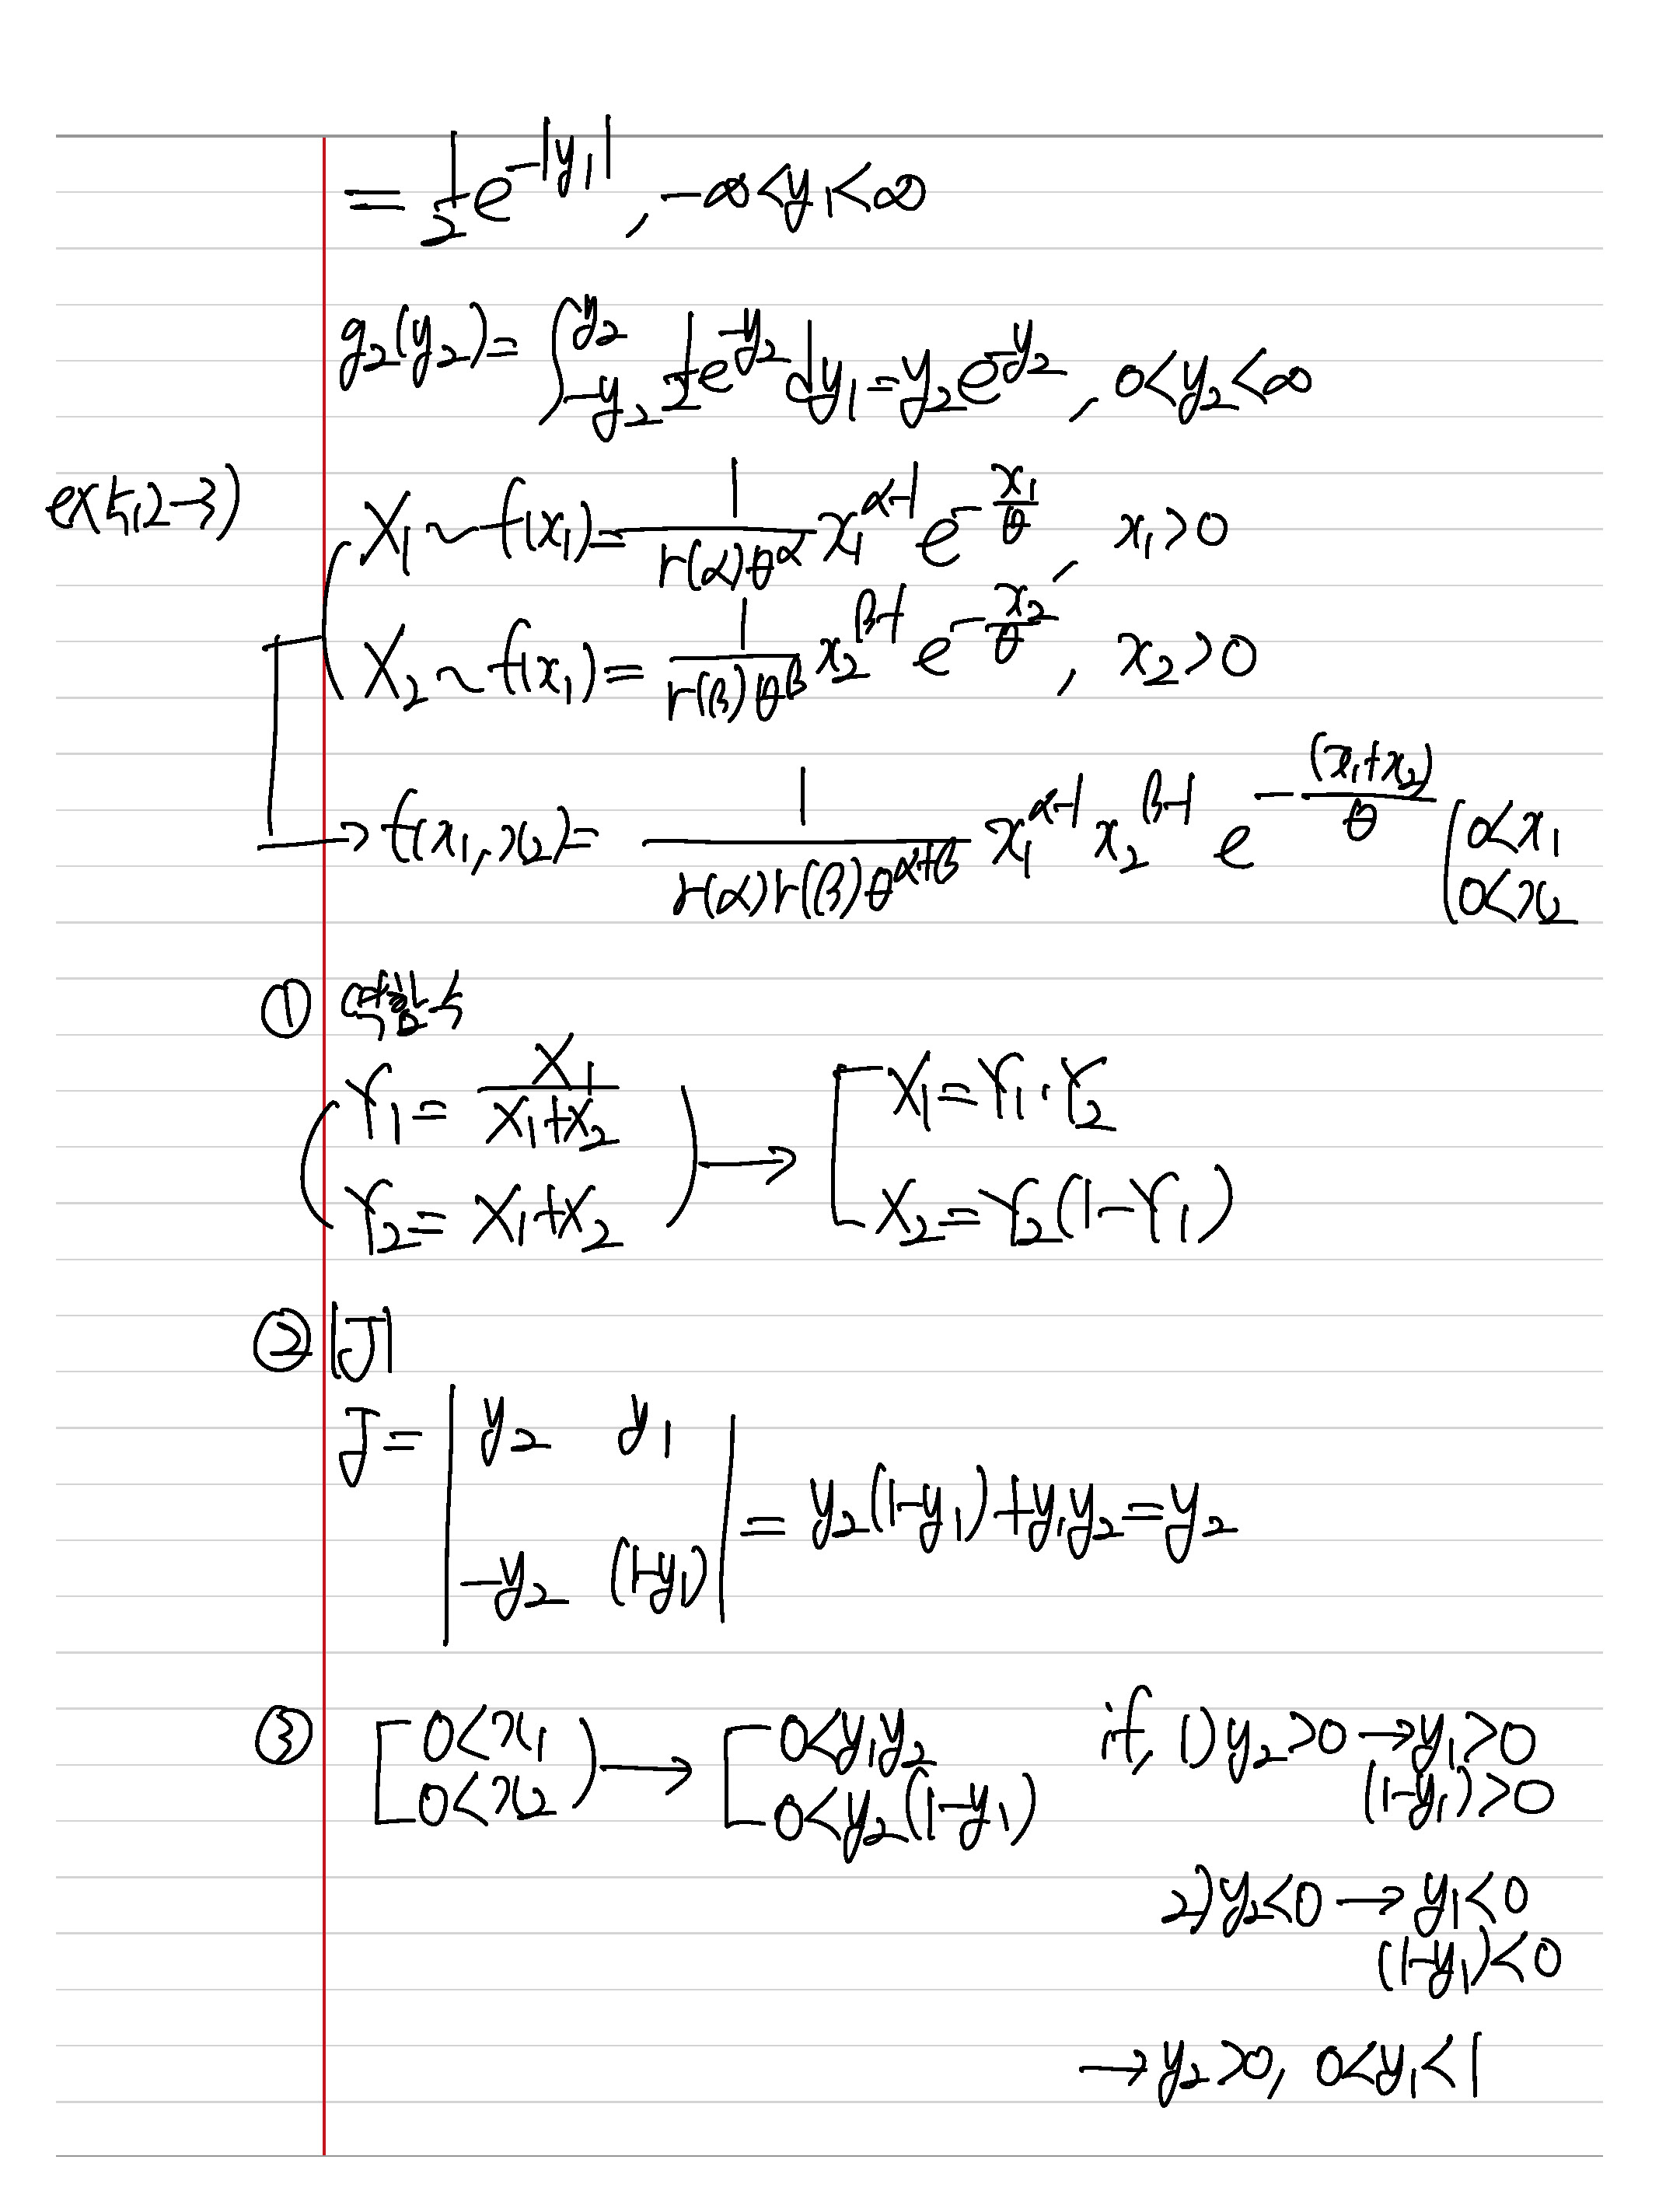 = 1/2 e^{-|y₁|}, -∞<y₁<∞
g₂(y₂)= ∫_{-y₂}^{y₂} 1/2 e^{-y₂} dy₁ = y₂e^{-y₂}, 0<y₂<∞
ex 5,2-3) X₁ ~ f(x₁) = 1/(Γ(α)θ^α) x₁^{α-1} e^{-x₁/θ}, x₁>0
X₂ ~ f(x₁) = 1/(Γ(β)θ^β) x₂^{β-1} e^{-x₂/θ}, x₂>0
→ f(x₁,x₂)= 1/(Γ(α)Γ(β)θ^{α+β}) x₁^{α-1} x₂^{β-1} e^{-(x₁+x₂)/θ} (0<x₁
0<x₂
① 역함수
Y₁ = X₁/(X₁+X₂) → X₁=Y₁·Y₂
Y₂ = X₁+X₂ X₂=Y₂(1-Y₁)
② |J|
J = | y₂ y₁
-y₂ (1-y₁) | = y₂(1-y₁)+y₁y₂=y₂
③ [0<x₁ → [0<y₁y₂ if, 1) y₂>0 → y₁>0
0<x₂ 0<y₂(1-y₁) (1-y₁)>0
2) y₂<0 → y₁<0
(1-y₁)<0
→ y₂>0, 0<y₁<1